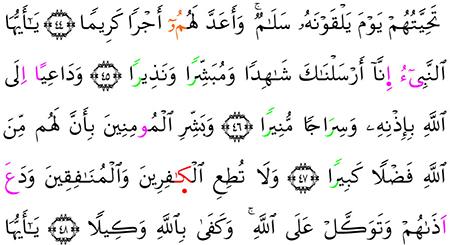 تَحِيَّتُهُمْ يَوْمَ يَلْقَوْنَهُۥ سَلَٰمٌۭ ۚ وَأَعَدَّ لَهُمُۥٓ أَجْرًا كَرِيمًا ﴿٤٤﴾ يَٰٓأَيُّهَا
النَّبِيٓءُ إِنَّآ أَرْسَلْنَٰكَ شَٰهِدًا وَمُبَشِّرًا وَنَذِيرًا ﴿٤٥﴾ وَدَاعِيًا اِلَى
اللَّهِ بِإِذْنِهِۦ وَسِرَاجًا مُّنِيرًا ﴿٤٦﴾ وَبَشِّرِ الْمُومِنِينَ بِأَنَّ لَهُم مِّنَ
اللَّهِ فَضْلًا كَبِيرًا ﴿٤٧﴾ وَلَا تُطِعِ الْكَٰفِرِينَ وَالْمُنَٰفِقِينَ وَدَعَ
اَذَىٰهُمْ وَتَوَكَّلْ عَلَى اللَّهِ ۚ وَكَفَىٰ بِاللَّهِ وَكِيلًا ﴿٤٨﴾ يَٰٓأَيُّهَا